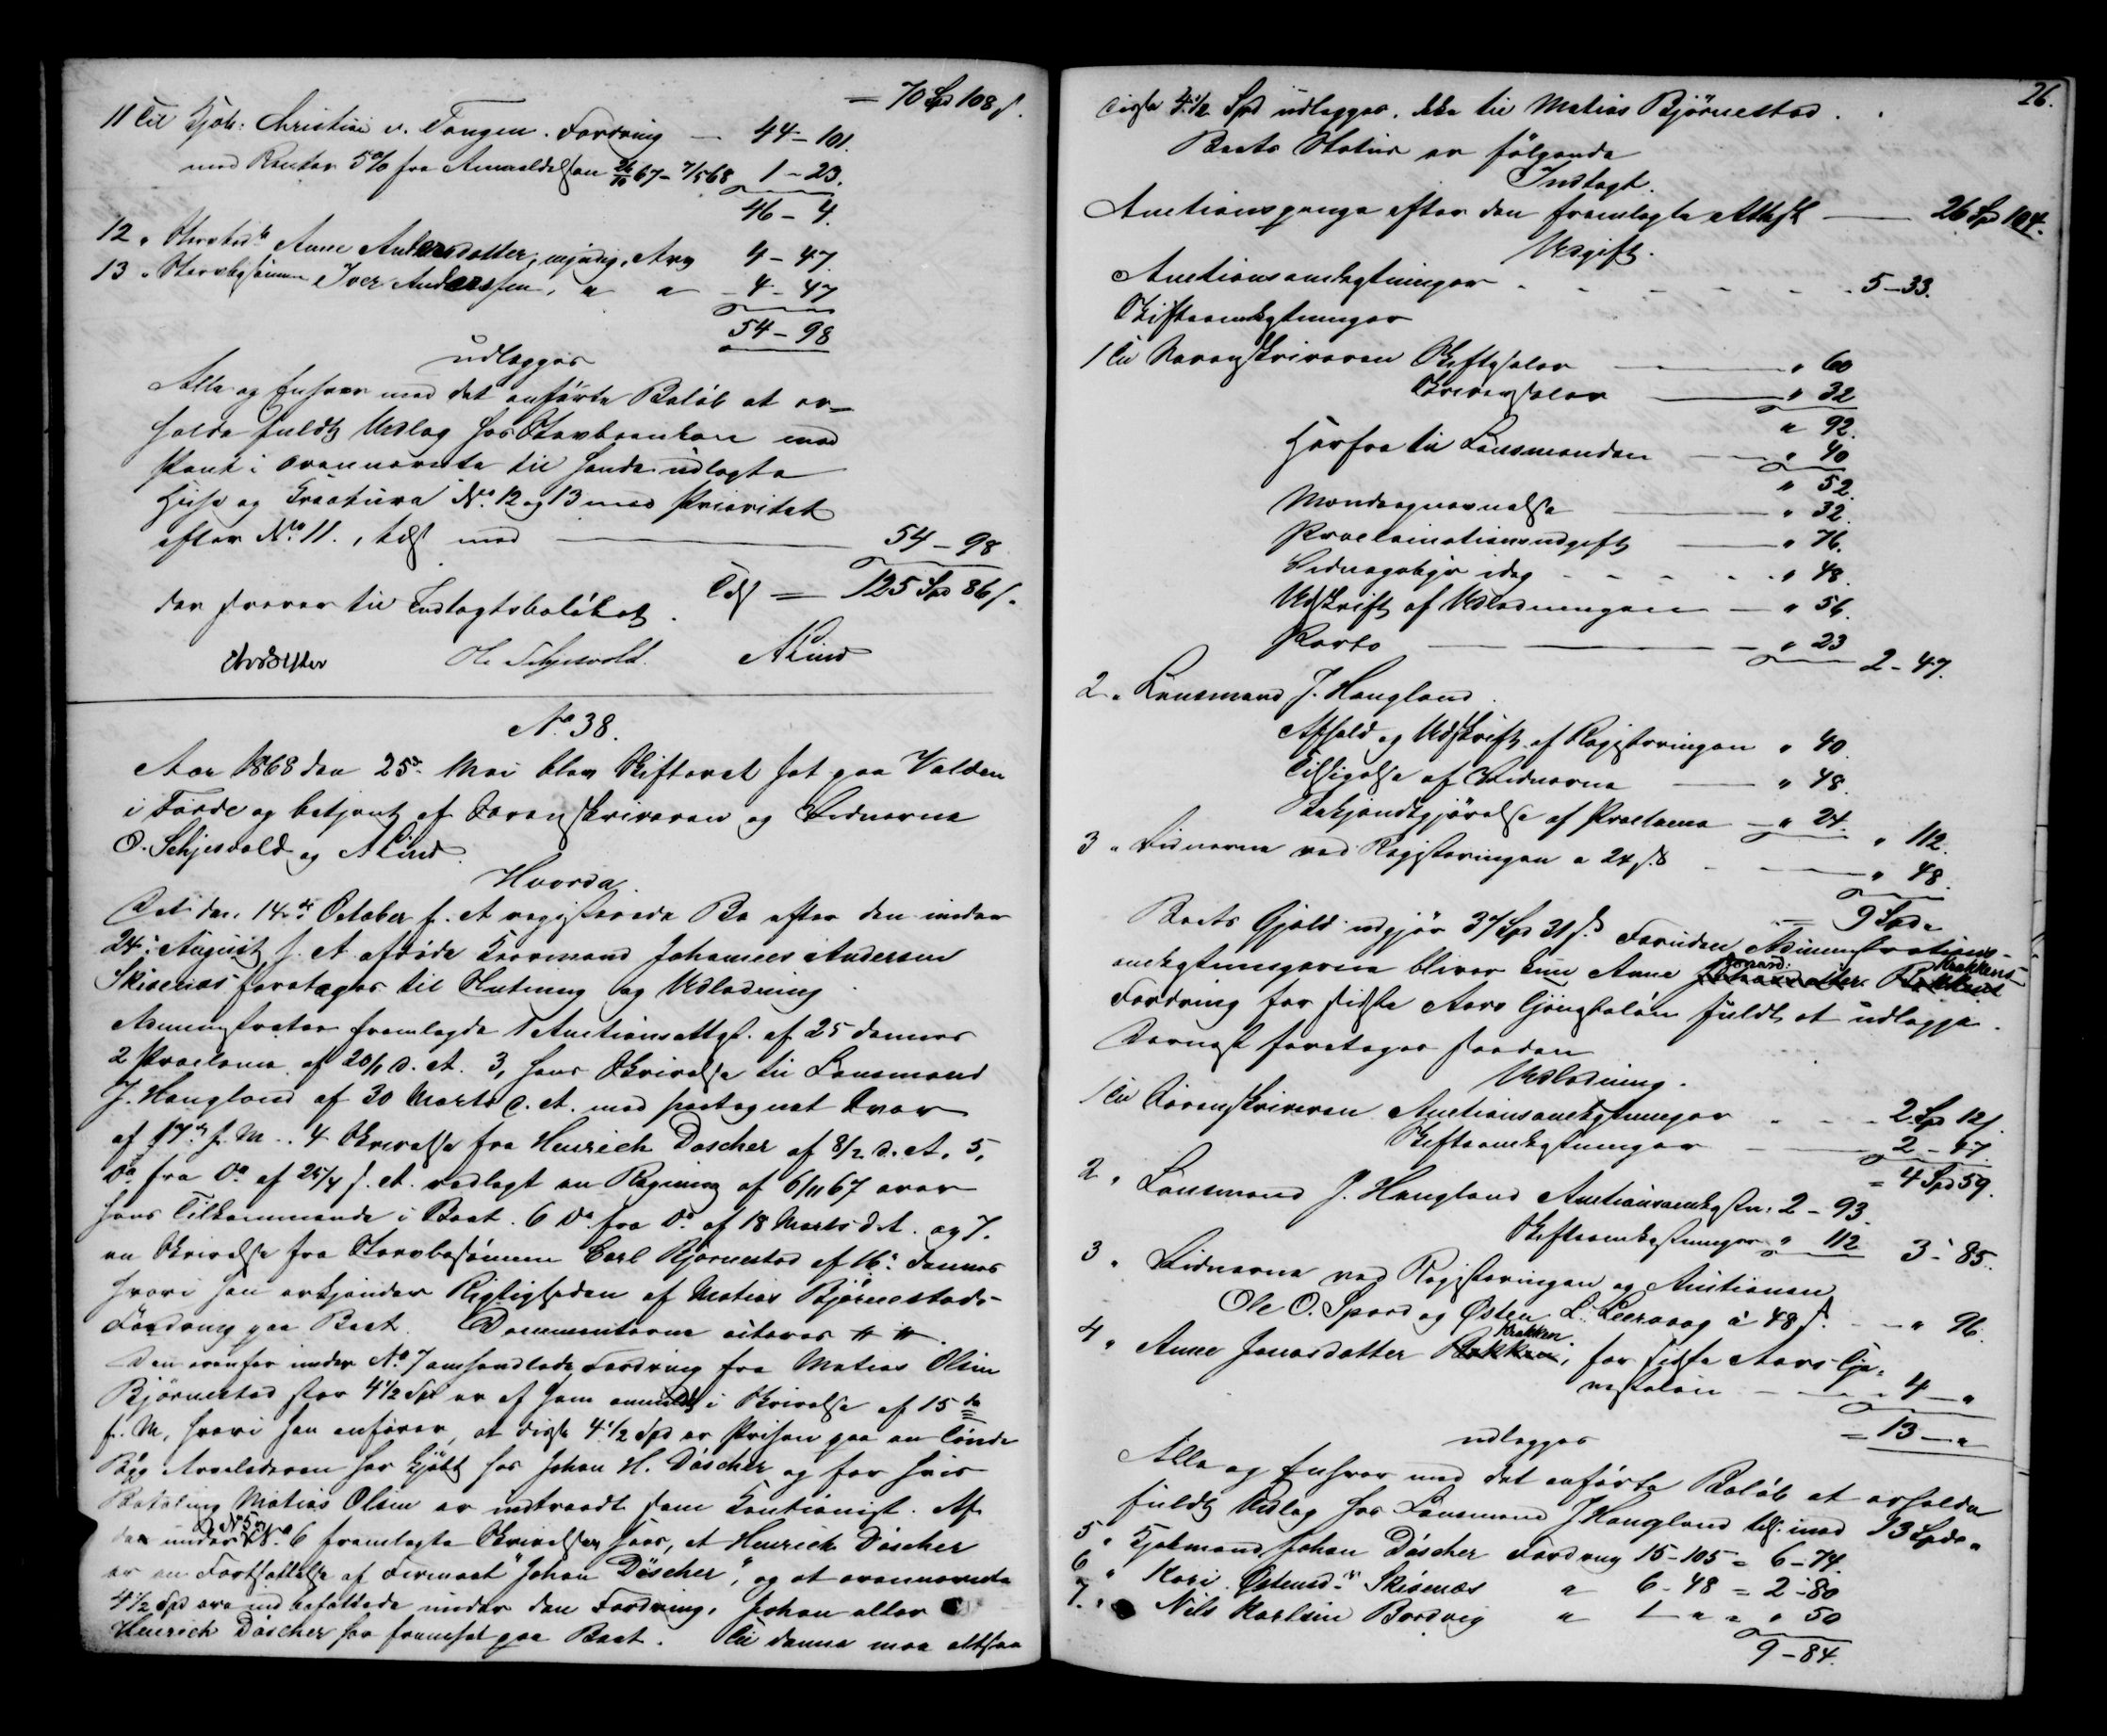 = 70 Spd 108 s.
11 Til Kjøb: Christine v. Tangen. Fordring — 44 – 101.
med Renter 5% fra Anmeldelsen 26/10 67 – 7/5 68 1 – 23.
46 – 4.
12 „ Anne Andersdatter, myndig, Arv 4 – 47.
13 „ Stervbosønnen Iver Anderssen, „ „ – 4 – 47
54 – 98
udlægges
Alle og Enhver med det anførte Beløb at er-
holde fuldt Udlæg hos Stervboenken med
Pant i ovennævnte til hende udlagte
Huse og Kreature No. 12 og 13 med Prioritet
efter No. 11., tils. med — 54 – 98
Tils = 125 Spd 86 s.
der svarer til Indtægtsbeløbet.
Ole Schjesvold. A Lind
No. 38.
Aar 1868 den 25de Mai blev Skifteret sat paa Volden
i Førde og betjent af Sorenskriveren og Vidnerne
O. Schjesvold og A Lind.
Hvorda
Det den 14de October f. A. registrerede Bo efter den under
24de August f. A. afdøde Enormand Johannes Andersen
Skisenæs foretages til Slutning og Udlodning.
Administrator fremlagde 1 Auctionsattest af 25 dennes
2 Proclama af 20/1 d. A. 3, hans Skrivelse til Lensmand
J. Haugland af 30 Marts d. A. med paategnet Svar
af 17de f. M. 4 Skrivelse fra Henrich Döscher af 8/2 d. A. 5,
Do. fra Do. af 25/4 f. A. vedlagt en Regning af 6/11 67 over
hans Tilkommende i Boet. 6 Do. fra Do. af 18 Marts d. A. og 7.
en Skrivelse fra Stervbosønnen Carl Bjørnestad af 16de dennes
hvori han erkjender Rigtigheden af Matias Bjørnestads
Fordring paa Boet. Documenterne citeres # #.
Den ovenfor under No. 7 omhandlede Fordring fra Matias Olsen
Bjørnestad stor 4 1/2 Spd er af ham anmeldt i Skrivelse af 15de
f. M, hvori han anfører, at disse 4 1/2 Spd er Prisen paa en Tønde
Byg Arveladeren har kjøbt hos Johan H. Döscher og for hvis
Betaling Matias Olsen er indtraadt som Kautionist. Af
og No. 5
de under No. 6 fremlagte Skrivelser sees, at Henrich Döscher
er en Fortsættelse af Firmaet "Johan Döscher", og at ovennævnte
4 1/2 Spd ere indbefattede under den Fordring, Johan eller
Henrich Döscher har fremsat paa Boet. Til denne maa altsaa
26.
disse 4 1/2 Spd udlægges, ikke til Matias Bjørnestad.
Boets Status er følgende
Indtægt.
Auctionspenge efter den fremlagte Attest — 26 Spd 104.
Udgift.
Auctionsomkostninger - - - - - - 5 – 33.
Skifteomkostninger
1 Til Sorenskriveren Skiftesalær — „ 60
Skriversalær — „ 32
„ 92.
Herfra til Lensmanden — „ 40
„ 52.
Mændsopnævnelse — „ 32.
Proclamationsudgift — „ 76.
Vidnegebyr idag - - - - „ 48.
Udskrift af Udlodningen — „ 56.
Porto — „ 23
2 – 47.
2 „ Lensmand J. Haugland.
Afhold og Udskrift af Registreringen „ 40
Tilsigelse af Vidnerne — „ 48.
Bekjendtgjørelse af Proclama — „ 24.
„ 112.
3 „ Vidnerne ved Registreringen a 24 s. — „ 48.
= 9 Spd „
Boets Gjæld udgjør 37 Spd 31 s. Foruden Administrations-
omkostningerne bliver kun Anne Jonasd: Krakken's
Fordring for sidste Aars Tjenesteløn fuldt at udlægge.
Dernæst foretages saadan
Udlodning.
1 Til Sorenskriveren Auctionsomkostninger - - - 2 Spd 12 s.
Skifteomkostninger — 2 – 47.
= 4 Spd 59.
2 „ Lensmand J. Haugland Auctionsomkostn: 2 – 93.
Skifteomkostninger „ 112 3 – 85.
3 „ Vidnerne ved Registreringen og Auctionen
Ole O. Spord og Østen L. Leervaag à 48 s. — „ 96.
4 „ Anne Jonasdatter Krakken, for sidste Aars Tje-
nesteløn — 4 – „
= 13 – „
udlægges
Alle og Enhver med det anførte Beløb at erholde
fuldt Udlæg hos Lensmand J Haugland tils. med 13 Spd „
5 „ Kjøbmand Johan Döscher Fordring 15 – 105 = 6 – 74.
6 „ Kari Østensd. Skisenæs „ 6 – 48 = 2 – 80
7. „ Nils Karlsen Bordvig „ 1 „ = „ 50
9 – 84.